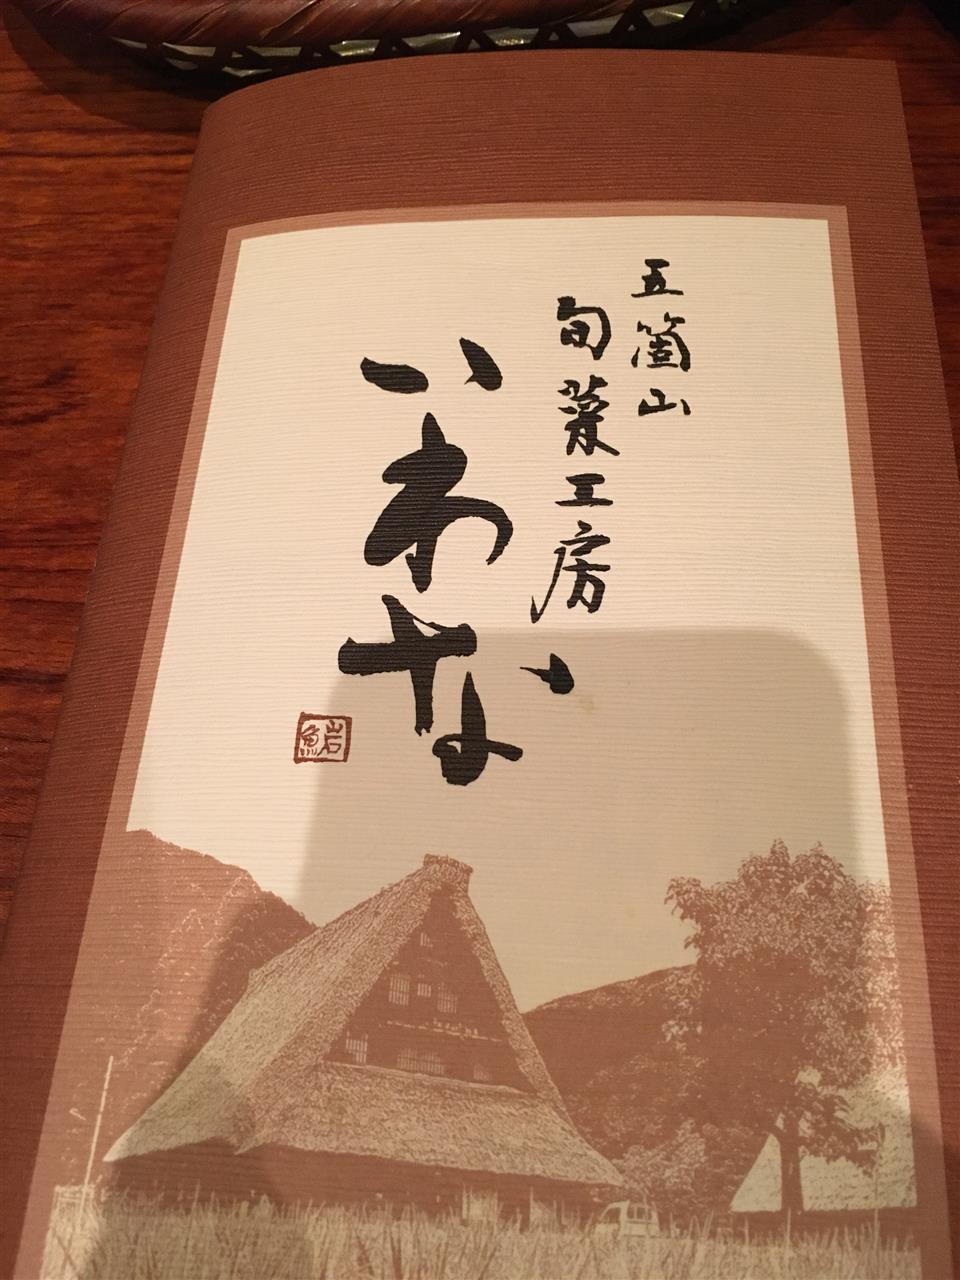 五箇山
旬菜工房
いわな
鮖